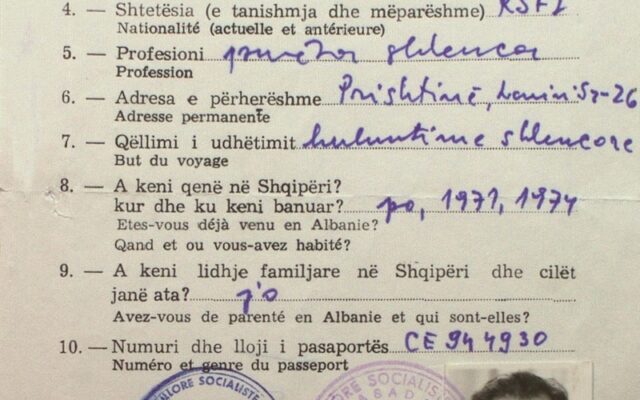 4. — Shtetësia (e tanishmja dhe mëparëshme) RSFJ
Nationalité (actuelle et antérieure)
5. — Profesioni punëtor shkencor
Profession
6. — Adresa e përhershme Prishtinë,
Adresse permanente
7. — Qëllimi i udhëtimit hulumtime shkencore
But du voyage
8. — A keni qenë në Shqipëri?
kur dhe ku keni banuar? po, 1971, 1974
Etes-vous déjà venu en Albanie?
Qand et ou vous-avez habité?
9. — A keni lidhje familjare në Shqipëri dhe cilët
janë ata? jo
Avez-vous de parenté en Albanie et qui sont-elles?
10. — Numuri dhe lloji i pasaportës CE 944930
Numéro et genre du passeport
SOCIALISTE
SOCIALIS